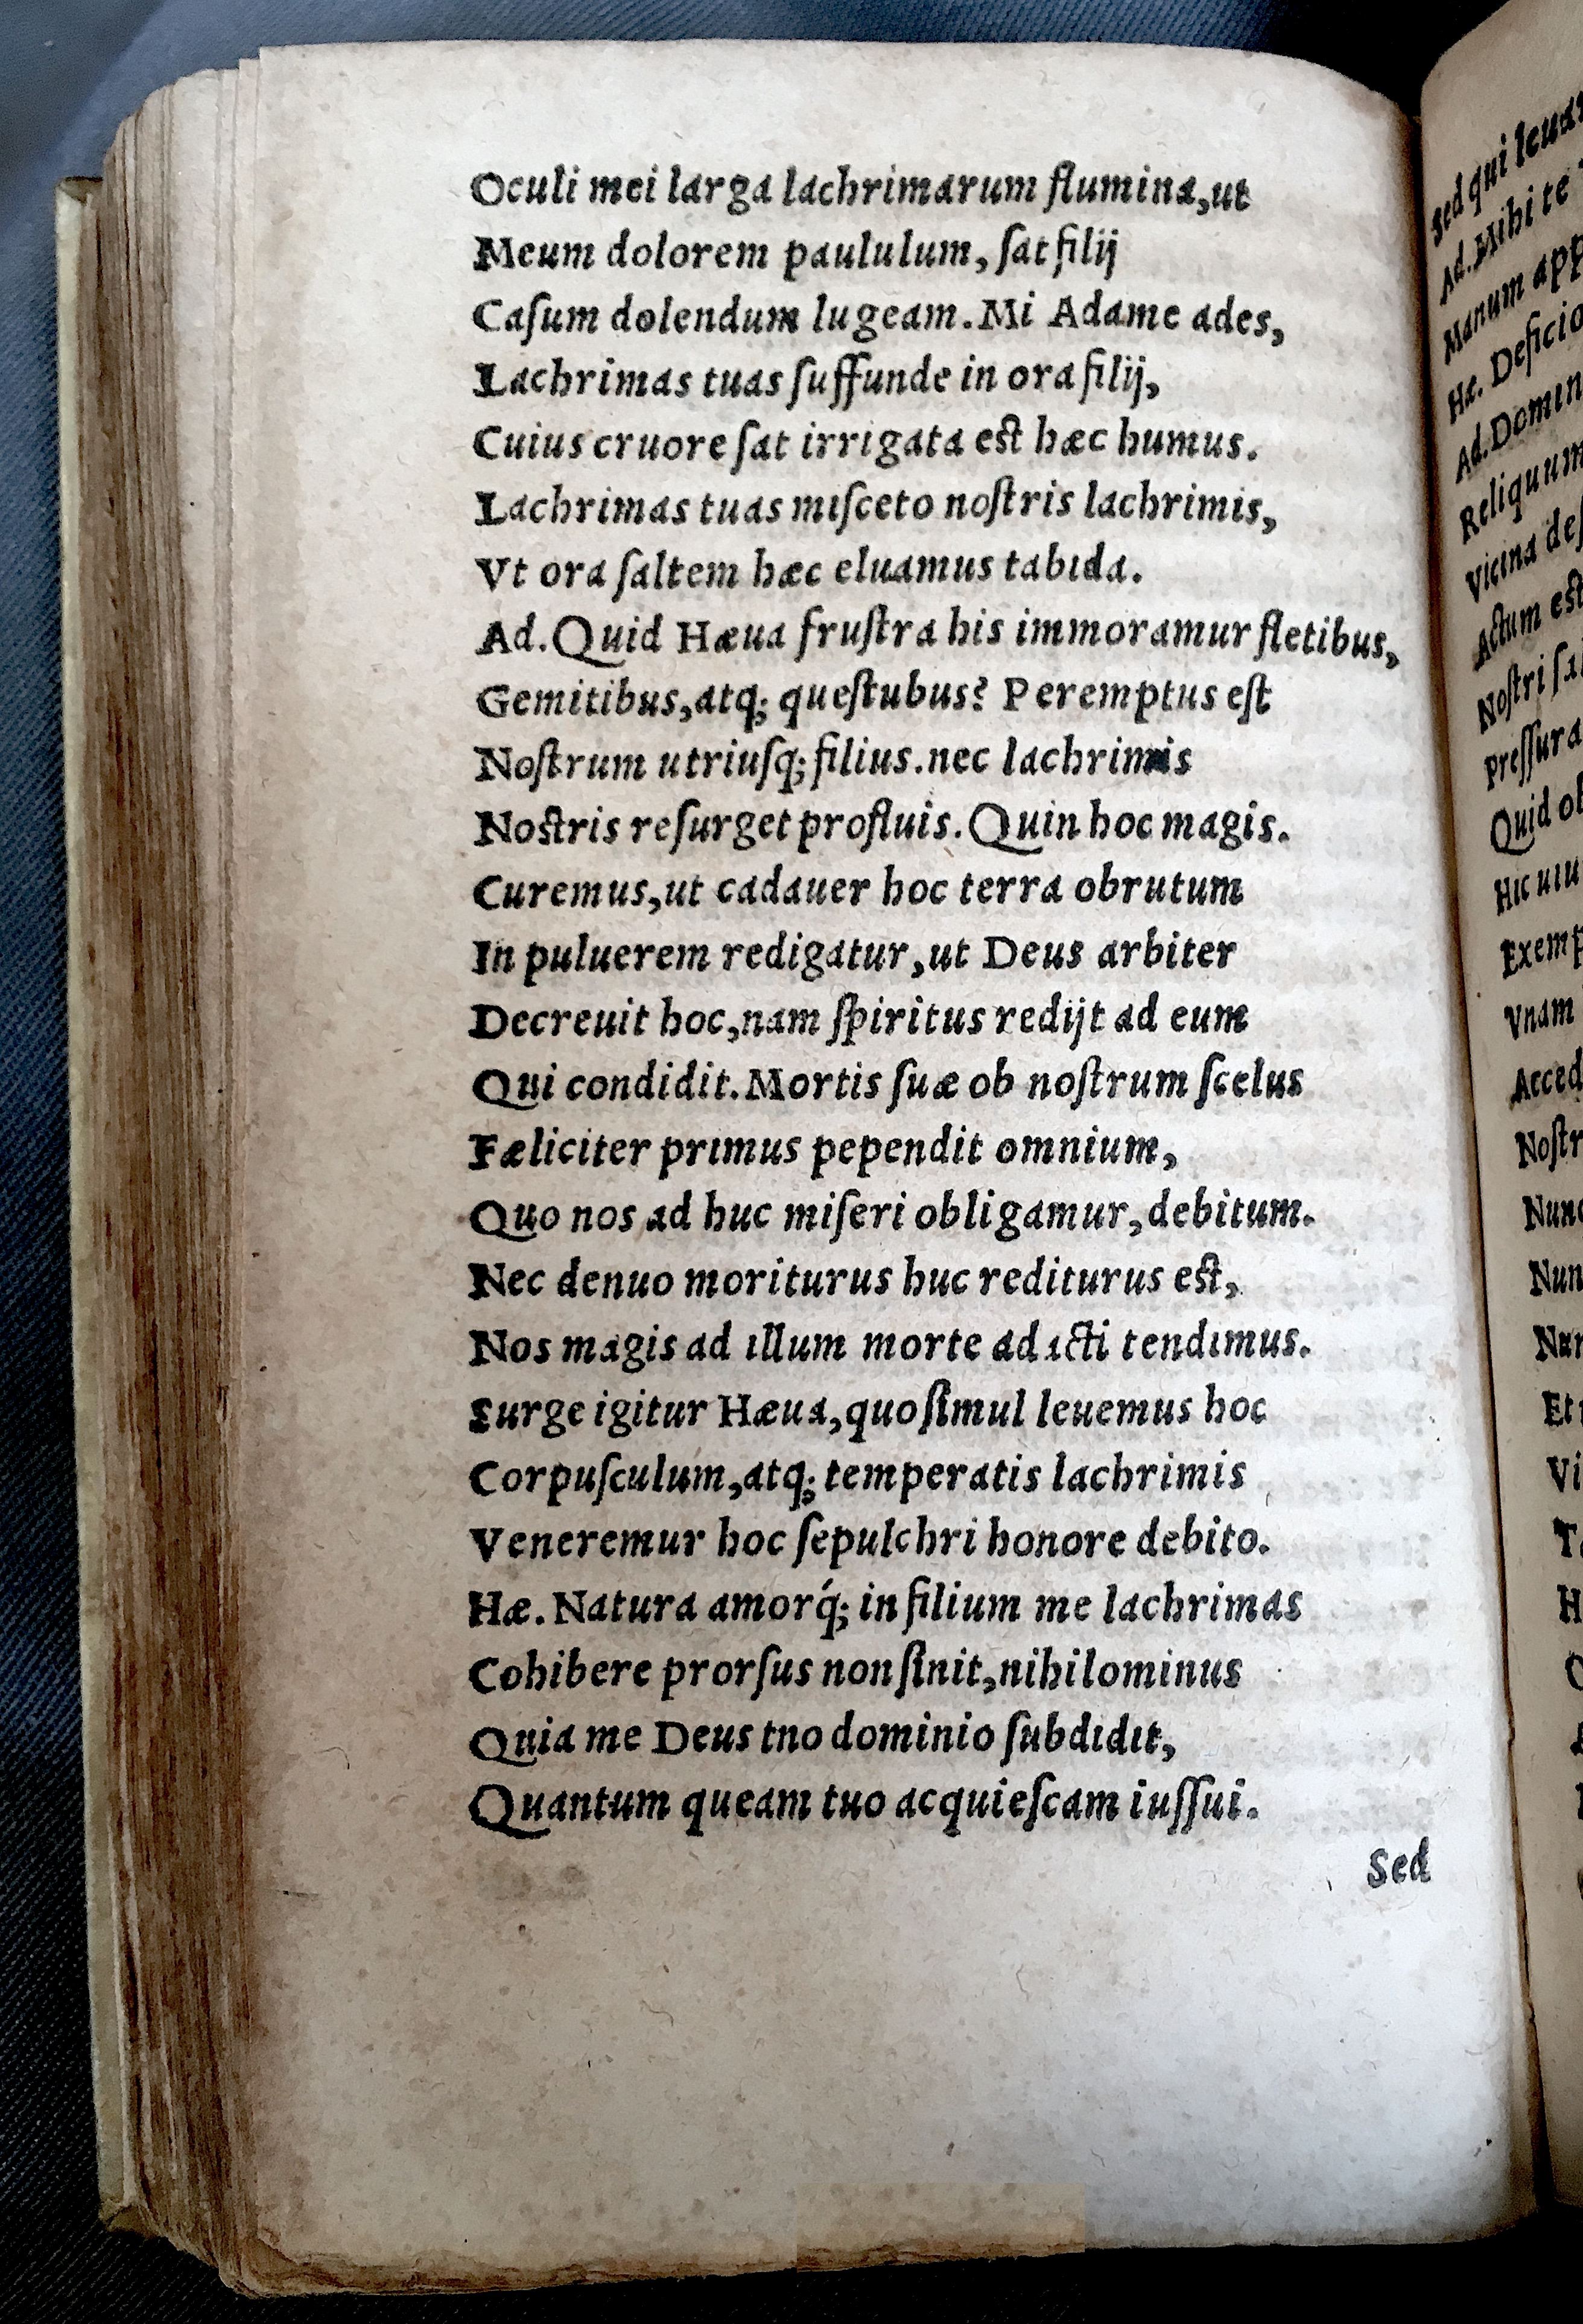 Oculi mei larga lachrimarum flumina,ut
Meum dolorem paululum, ſat filij
Caſum dolendum lugeam. Mi Adame ades,
Lachrimas tuas ſuffunde in ora filij,
Cuius cruore ſat irrigata est hæc humus.
Lachrimas tuas miſceto noſtris lachrimis,
Vt ora ſaltem hæc eluamus tabida.
Ad. Quid Hæua fruſtra his immoramur fletibus,
Gemitibus,atq; queſtubus? Peremptus eſt
Noſtrum utriuſq; filius. nec lachrimis
Nostris reſurget profluis. Quin hoc magis.
Curemus,ut cadauer hoc terra obrutum
In puluerem redigatur,ut Deus arbiter
Decreuit hoc,nam ſpiritus redijt ad eum
Qui condidit. Mortis ſuæ ob noſtrum ſcelus
Fæliciter primus pependit omnium,
Quo nos ad huc miſeri obligamur,debitum.
Nec denuo moriturus huc rediturus est,
Nos magis ad illum morte adicti tendimus.
Surge igitur Hæua,quo ſimul leuemus hoc
Corpuſculum,atq; temperatis lachrimis
Veneremur hoc ſepulchri honore debito.
Hæ. Natura amorq́; in filium me lachrimas
Cohibere prorſus non ſinit,nihilominus
Quia me Deus tno dominio ſubdidit,
Quantum queam tuo acquieſcam iuſſui.
Sed
Sed qui leuar
Ad. Mihi te
Manum app
Hæ. Deficio
Ad. Domin
Reliquum
Vicina deſ
Actum est
Noſtri
Preſſura
Quid ob
Hic uiu
Exemp
Vnam
Acced
Noſtr
Nunc
Nun
Nun
Et
Vi